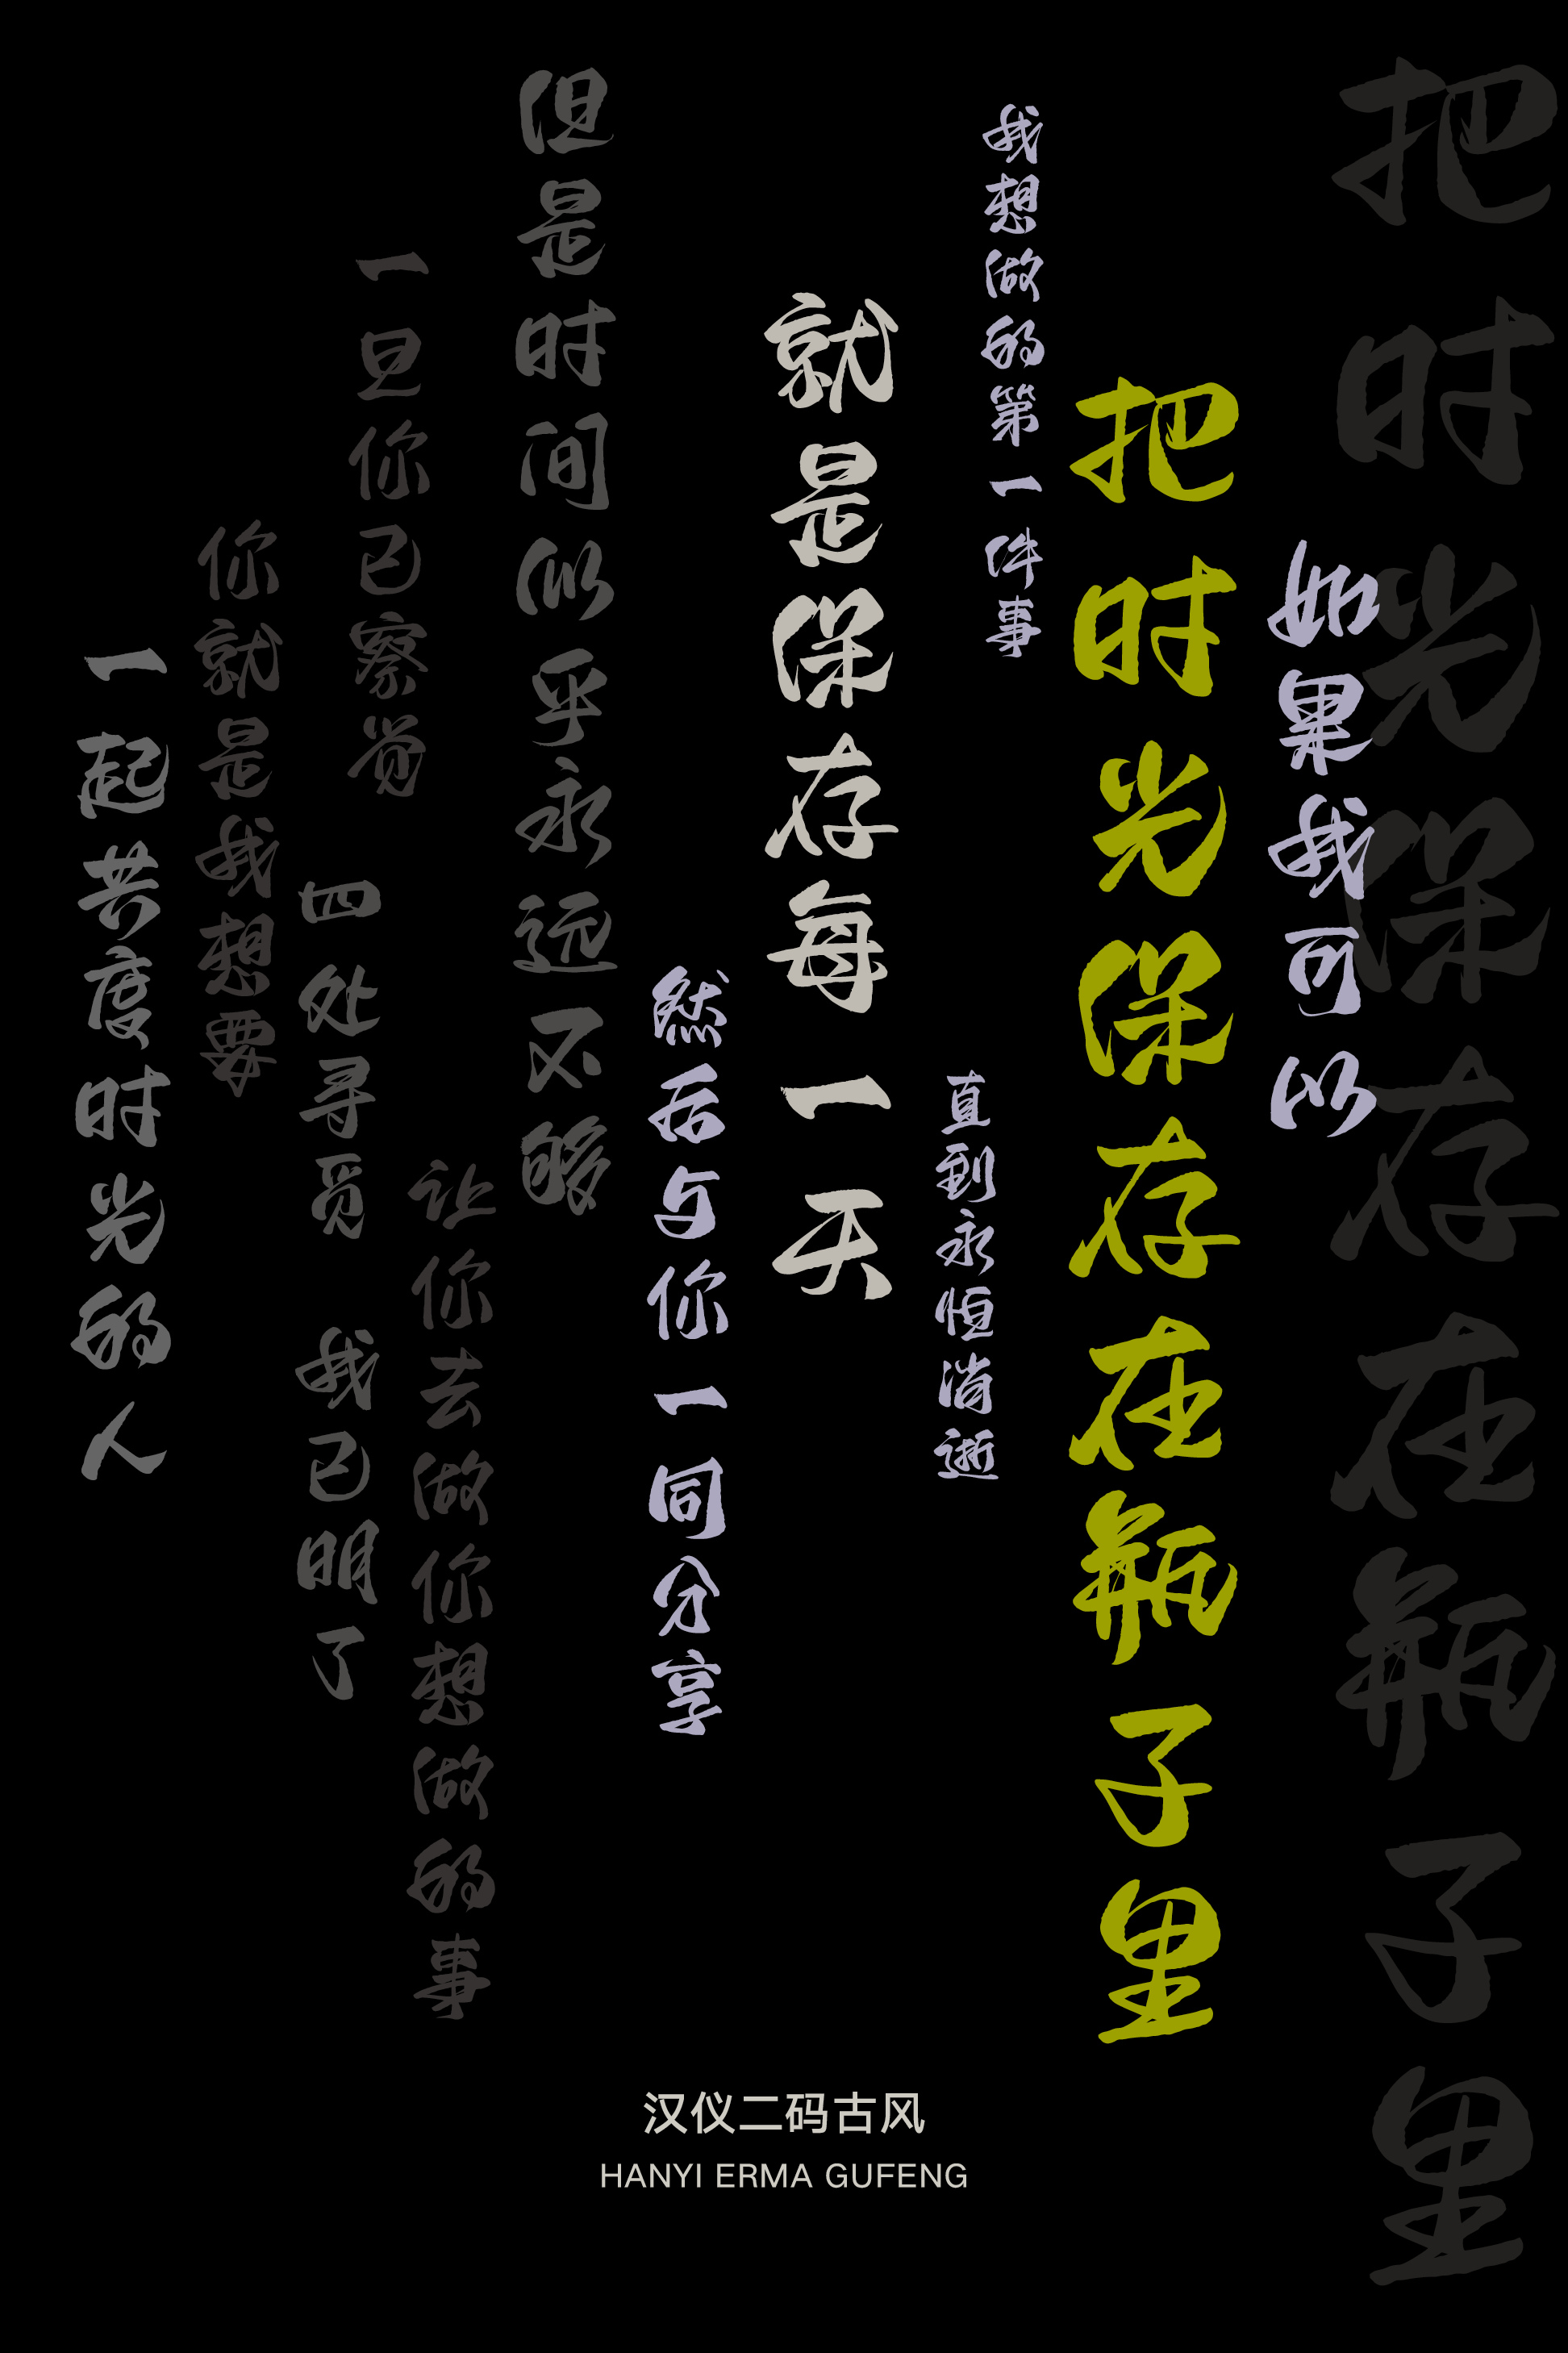 把时光保存在瓶子里
如果我可以
把时光保存在瓶子里
我想做的第一件事
就是保存每一天
直到永恒消逝
然后与你一同分享
但是时间似乎永远不够
让你去做你想做的事
一旦你已察觉
四处寻觅 我已明了
你就是我想要
一起共度时光的人
汉仪二码古风
HANYI ERMA GUFENG